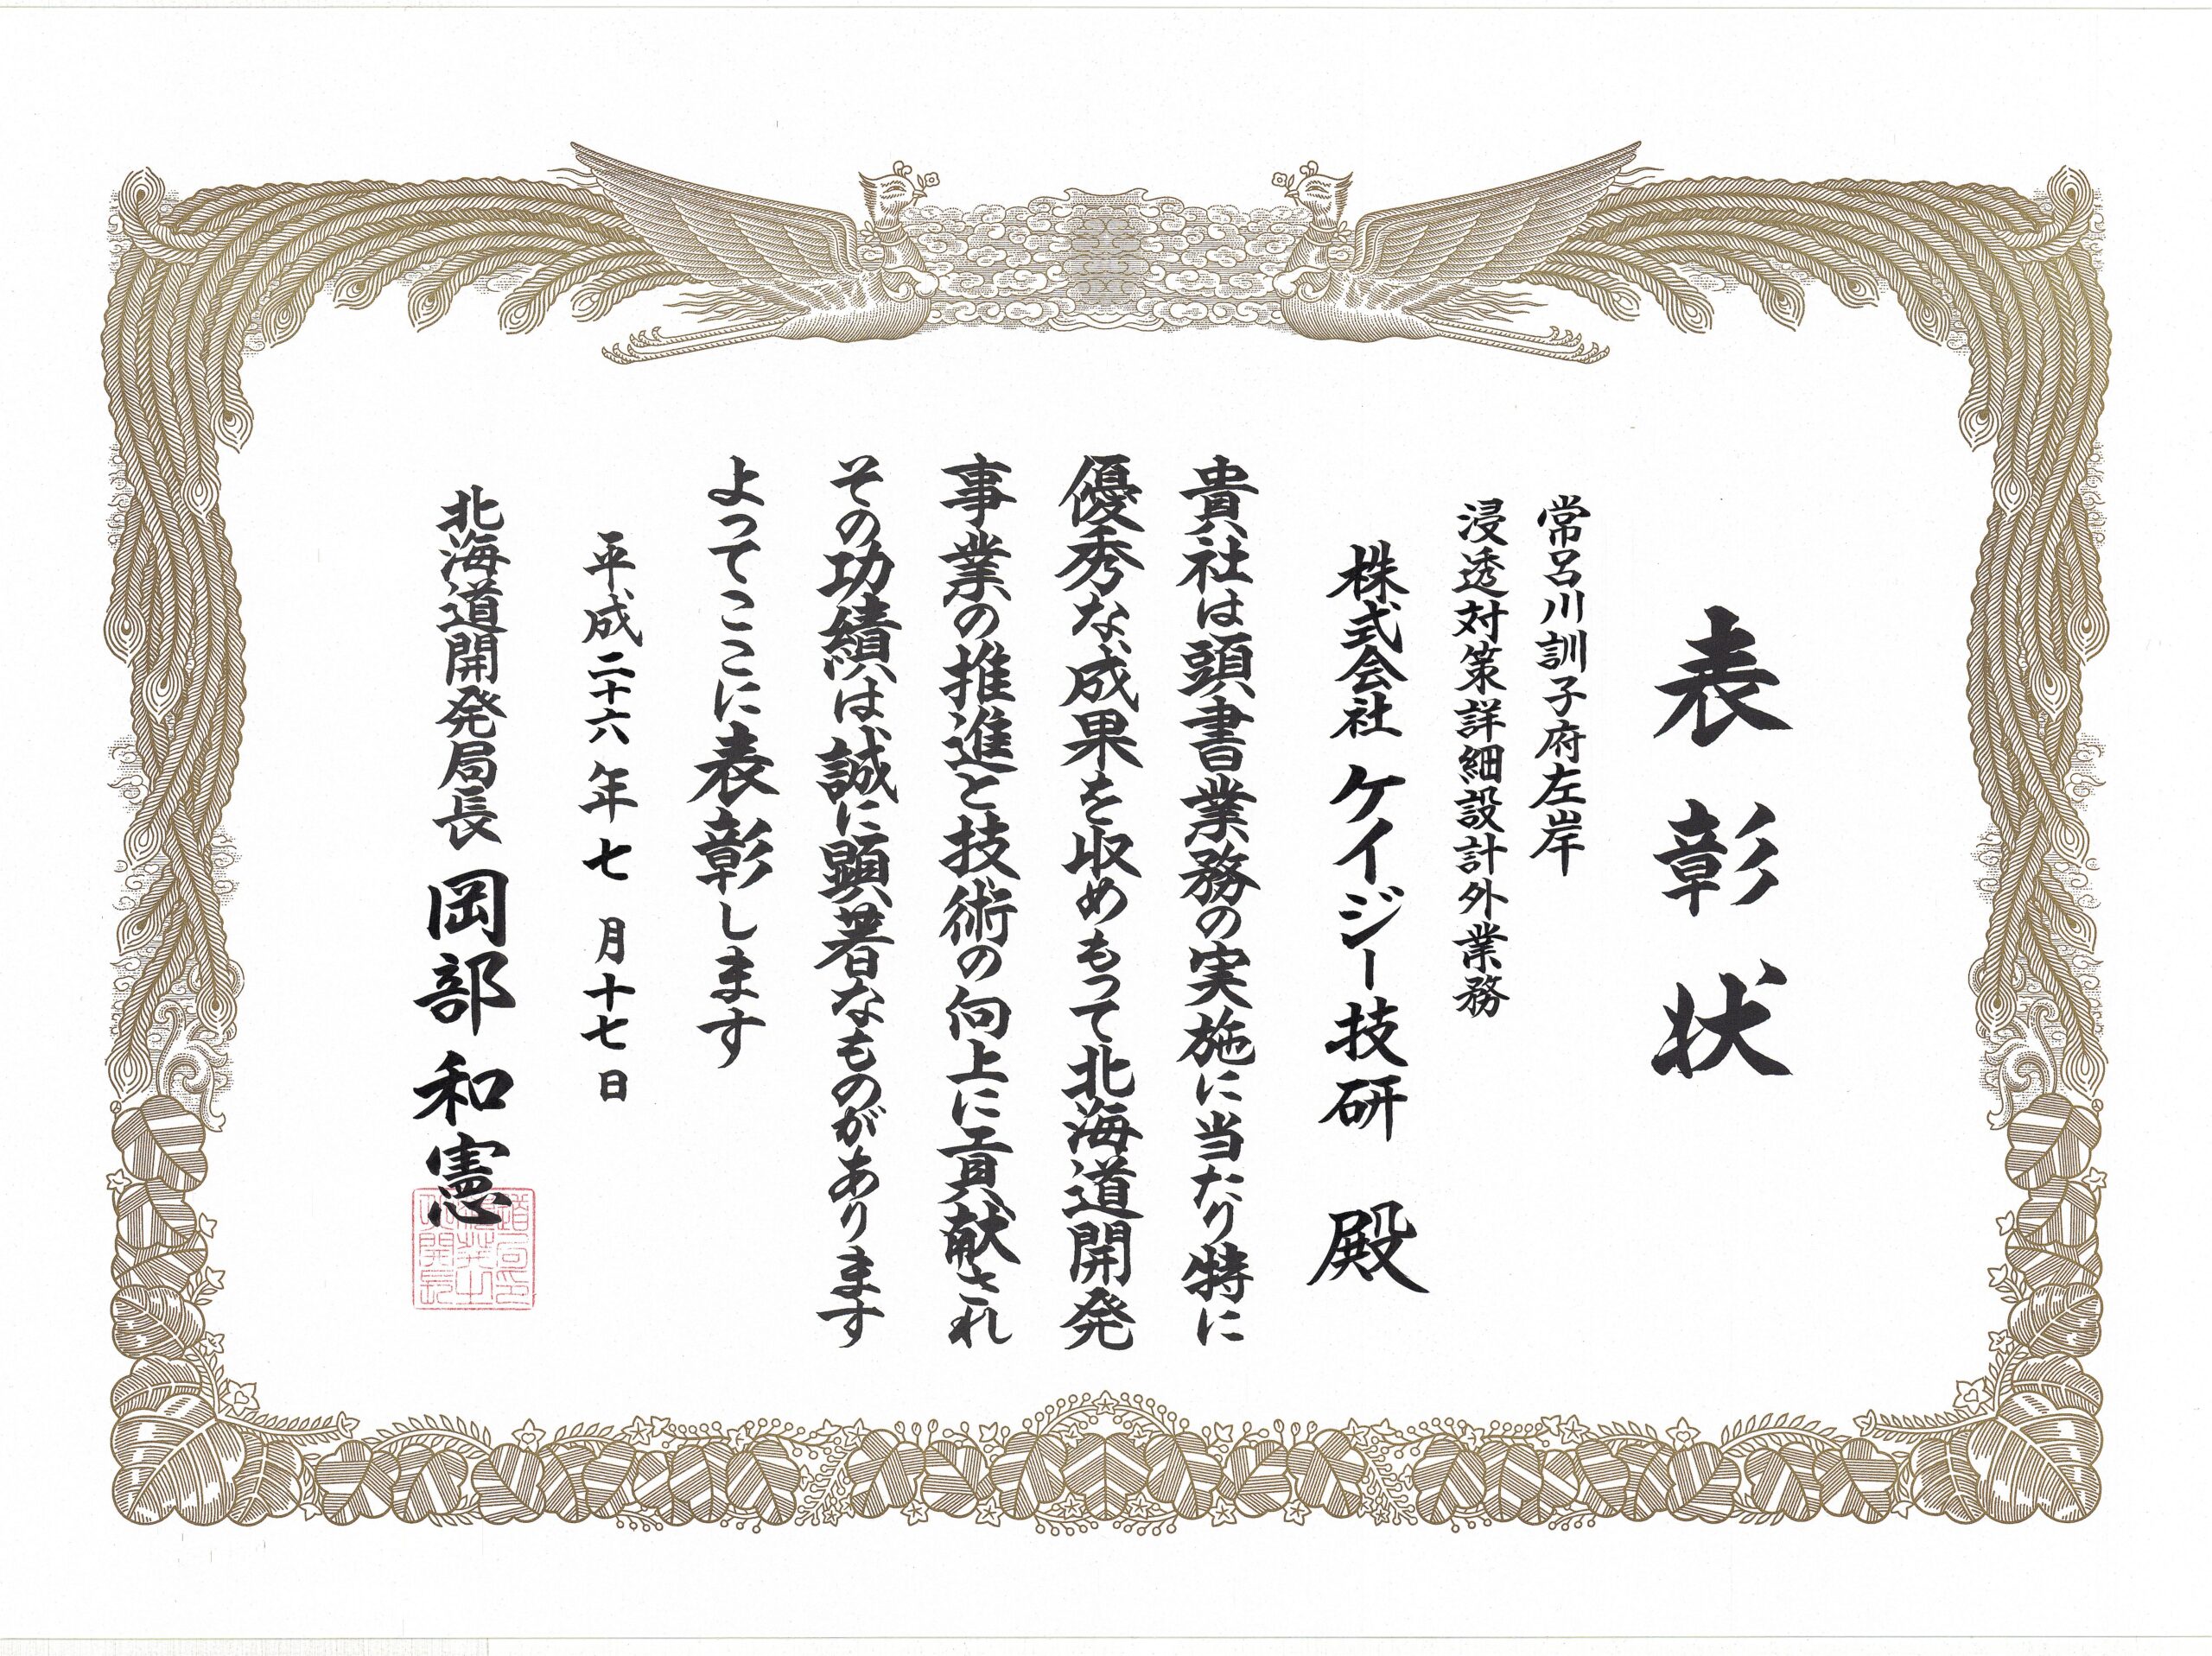 表彰状
常呂川訓子府左岸
浸透対策詳細設計外業務
株式会社 ケイジー技研 殿
貴社は頭書業務の実施に当たり特に
優秀な成果を収めもって北海道開発
事業の推進と技術の向上に貢献され
その功績は誠に顕著なものがあります
よってここに表彰します
平成二十六年七月十七日
北海道開発局長 岡部和憲